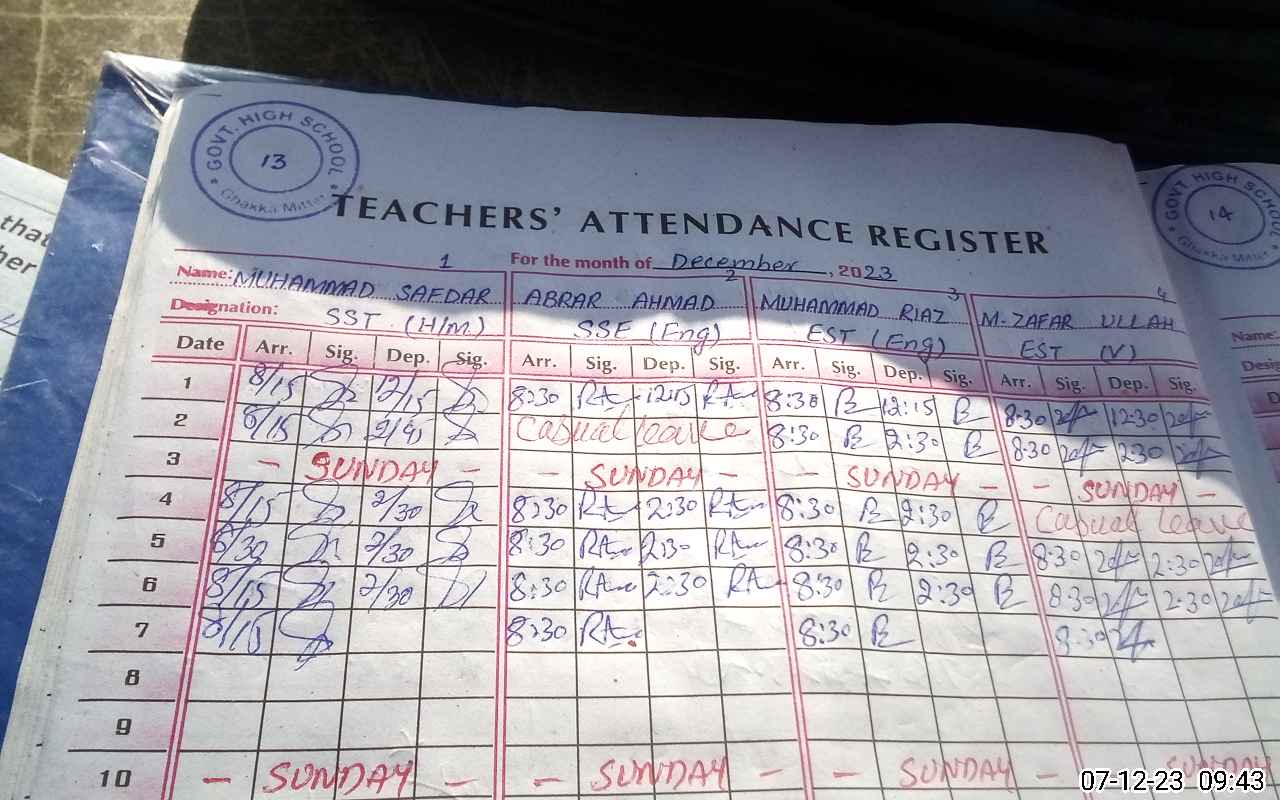 GOVT. HIGH SCHOOL
13
Ghakka Mitter
GOVT HIGH SCHOOL
14
that
her
TEACHERS' ATTENDANCE REGISTER
For the month of December, 2023
1 2 3 4
Name: MUHAMMAD SAFDAR ABRAR AHMAD MUHAMMAD RIAZ M. ZAFAR ULLAH Name:
Designation: SST (H/M) SSE (Eng) EST (Eng) EST (V)
Date Arr. Sig. Dep. Sig. Arr. Sig. Dep. Sig. Arr. Sig. Dep. Sig. Arr. Sig. Dep. Sig.
1 8/15 12/15 8:30 12:15 8:30 12:15 8:30 12:30
2 8/15 Casual leave 8:30 2:30 8:30 2:30
3 - SUNDAY - - SUNDAY - - SUNDAY - - SUNDAY -
4 8/15 2/30 8:30 2:30 8:30 2:30 Casual leave
5 8/30 2/30 8:30 2:30 8:30 2:30 8:30 2:30
6 8/15 2/30 8:30 2:30 8:30 2:30 8:30 2:30
7 8/15 8:30 8:30 8:30
8
9
10 - SUNDAY - - SUNDAY - - SUNDAY - SUNDAY
07-12-23 09:43